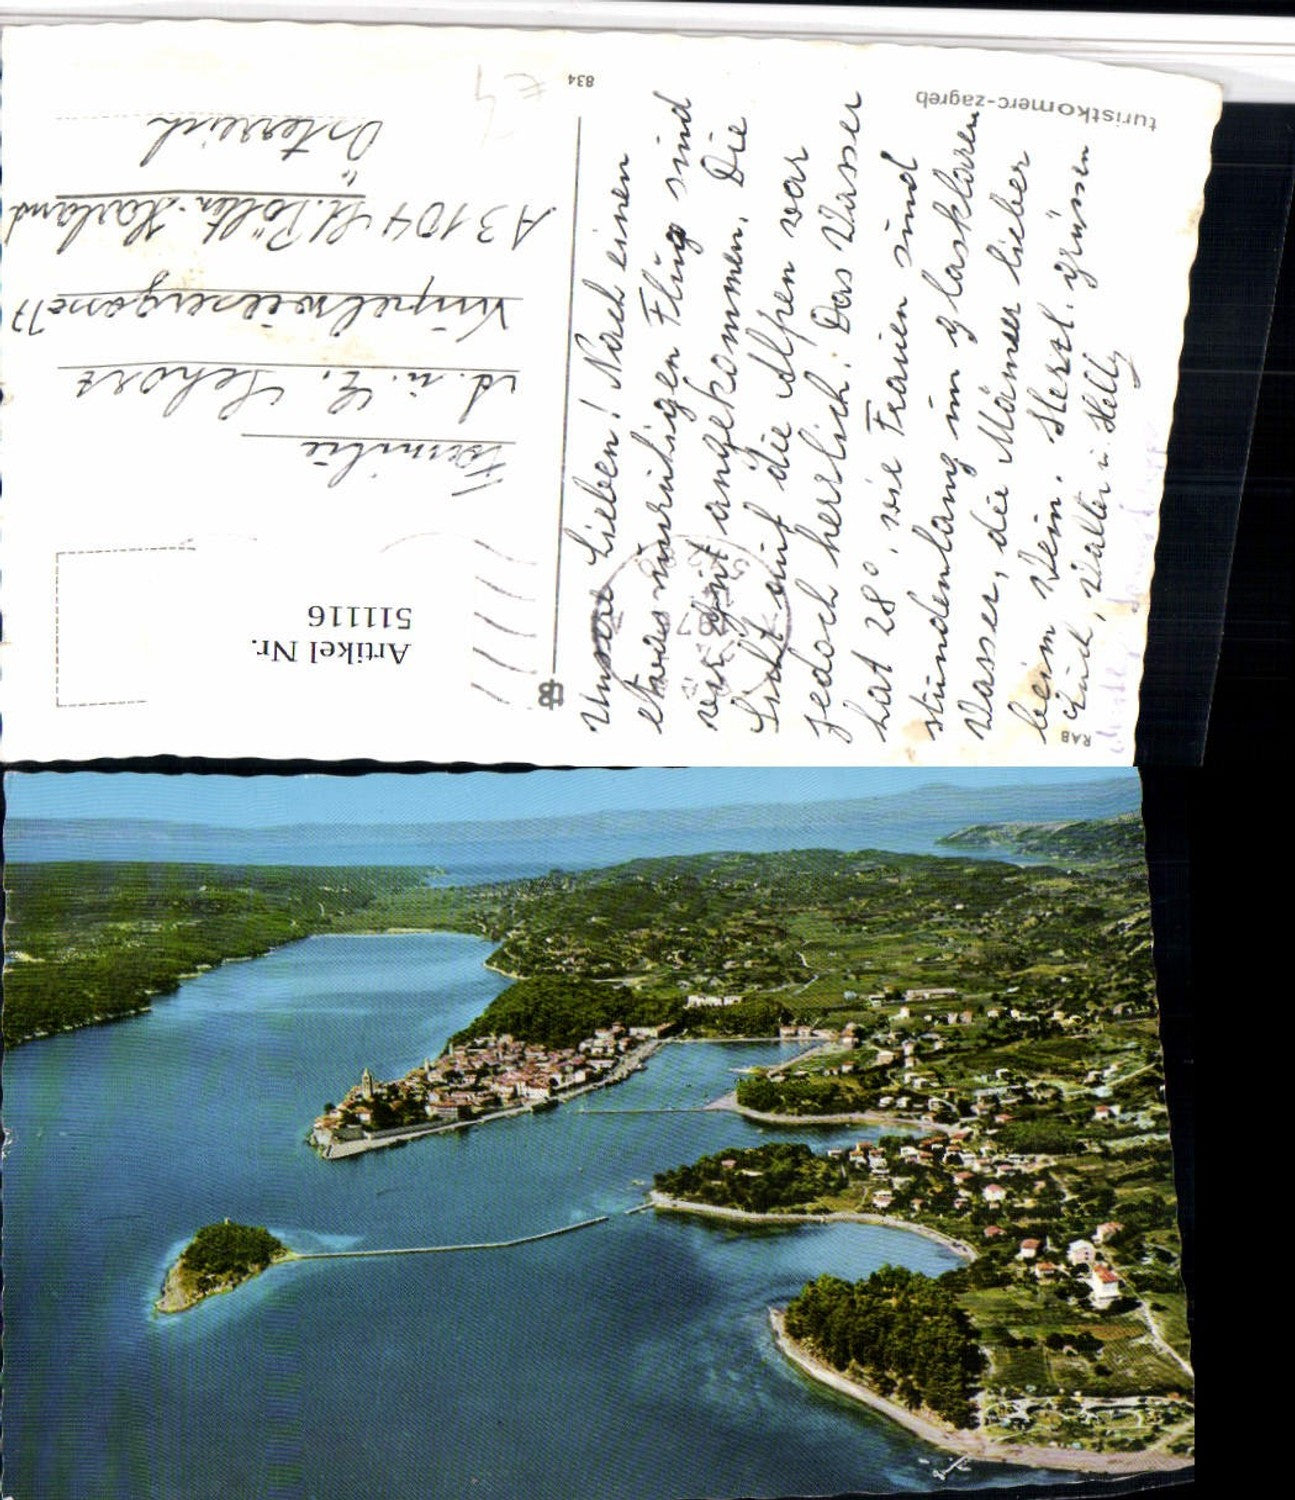 turistkomerc-zagreb
834
RAB
Artikel Nr.
511116
Unsere Lieben! Nach einen
etwas unruhigen Flug sind
wir gut angekommen. Die
Sicht auf die Alpen war
jedoch herrlich. Das Wasser
hat 28°, wir Frauen sind
stundenlang im glasklaren
Wasser, die Männer lieber
beim Wein. Herzl. grüssen
Euch, Walter u. Helly
Familie
Schörz
A 3104 St. Pölten-Harland
Österreich